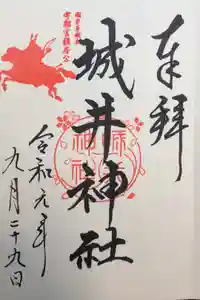 奉拝
城井神社
令和元年
九月二十九日